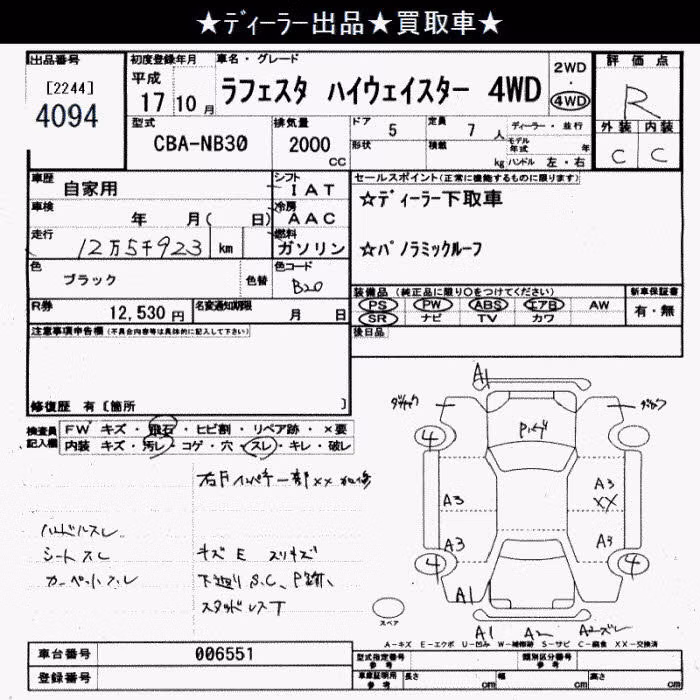 ★ディーラー出品★買取車★
出品番号
[2244]
4094
初度登録年月
平成
17 10 月
車名・グレード
ラフェスタ ハイウェイスター 4WD
2WD
・
4WD
評価点
R
外装 内装
C C
型式
CBA-NB30
排気量
2000
CC
ドア 5
形状
定員 7 人
積載 kg
ディーラー・並行
モデル年式 年
ハンドル 左・右
車歴 自家用
シフト
IAT
セールスポイント(正常に機能するものに限ります)
☆ディーラー下取車
☆パノラミックルーフ
車検 年 月( 日)
冷房
AAC
走行 12万5千923 km
燃料
ガソリン
色 ブラック 色替
色コード
B20
装備品 (純正品に限り○をつけてください)
PS PW ABS エアB AW
SR ナビ TV カワ
新車保証書
有・無
R券 12,530 円
名変通知期限 月 日
後日品
注意事項申告欄(不具合内容等は具体的に記入して下さい)
修復歴 有 [箇所 ]
検査員記入欄
FW キズ・飛石・ヒビ割・リペア跡・×要
内装 キズ・汚レ・コゲ・穴・スレ・キレ・破レ
ハンドルスレ
シートスレ
カーペットスレ
キズ E スリキズ
下廻り S.C、
スタッドレスT
A1
4
4
4
A3
A3
A3
XX
A3
A1
A1 A2 A2-ズレ
スペア
A-キズ E-エクボ U-凹み W-補修跡 S-サビ C-腐食 XX-交換済
車台番号 006551
登録番号
型式指定番号
参考
類別区分番号
参考
車庫証明用
参考
長さ cm 幅 cm 高さ cm